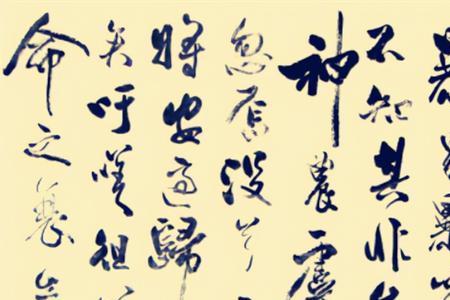 不知其非
神農虞
忽焉沒兮
將安適歸
矣吁嗟徂
命之衰